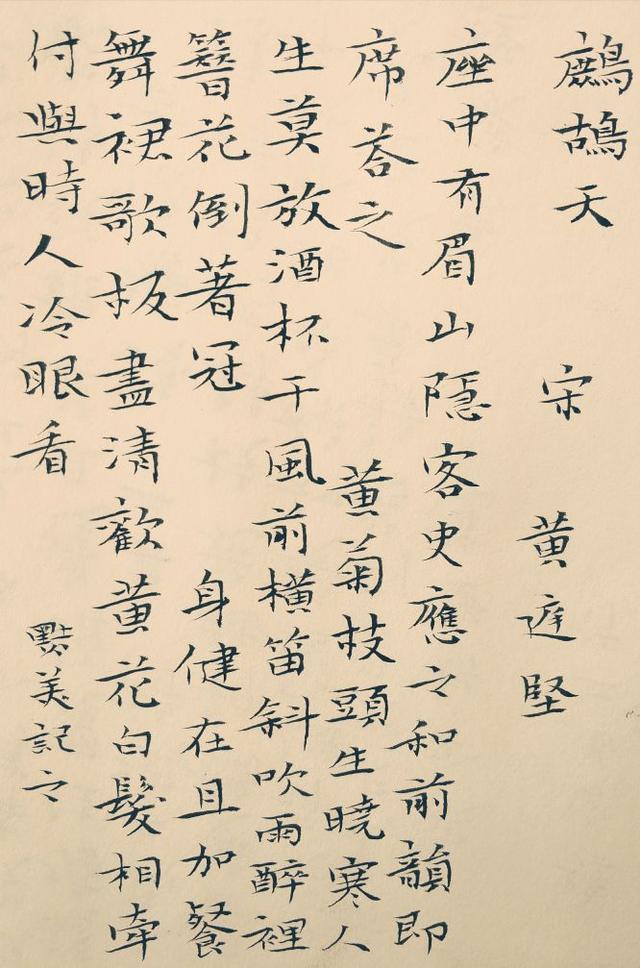 鷓鴣天
宋 黃庭堅
座中有眉山隱客史應之和前韻即
席荅之
黃菊枝頭生曉寒人
生莫放酒杯干風前橫笛斜吹雨醉裡
簪花倒著冠
身健在且加餐
舞裙歌板盡清歡黃花白髮相牽
付與時人冷眼看
點美記之